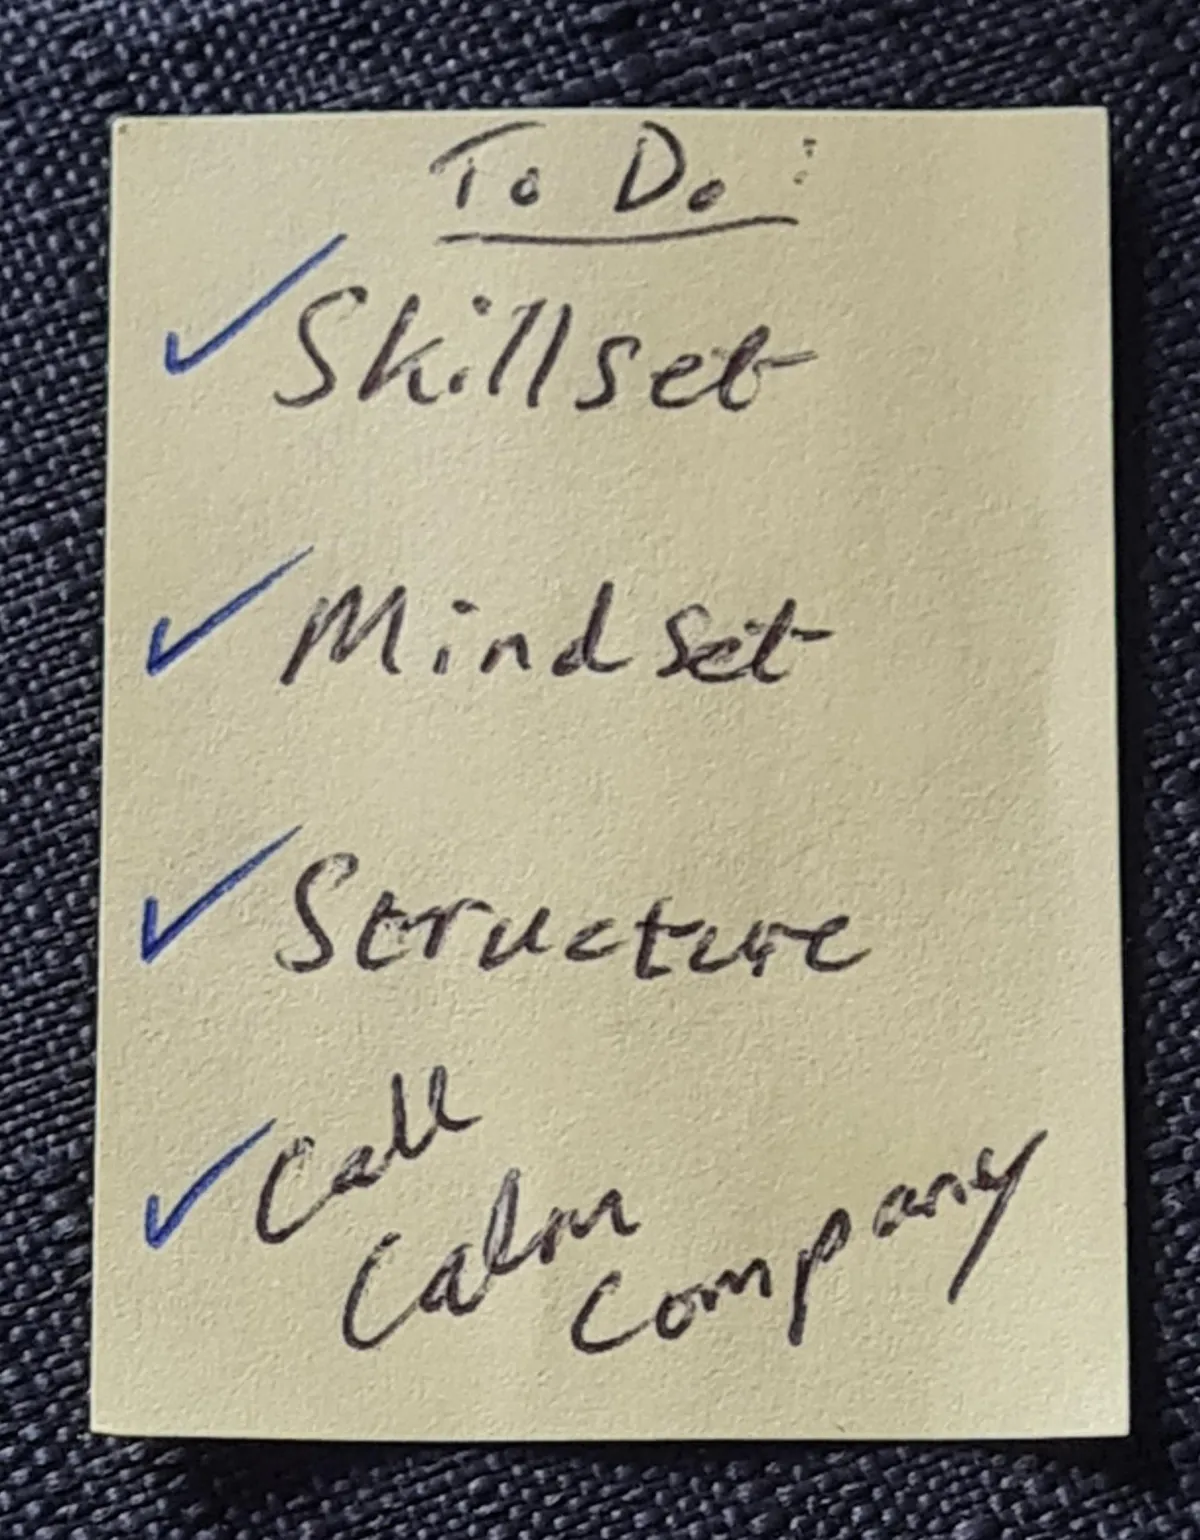 To Do:
✓ Skillset
✓ Mindset
✓ Structure
✓ Call
Calm
Company